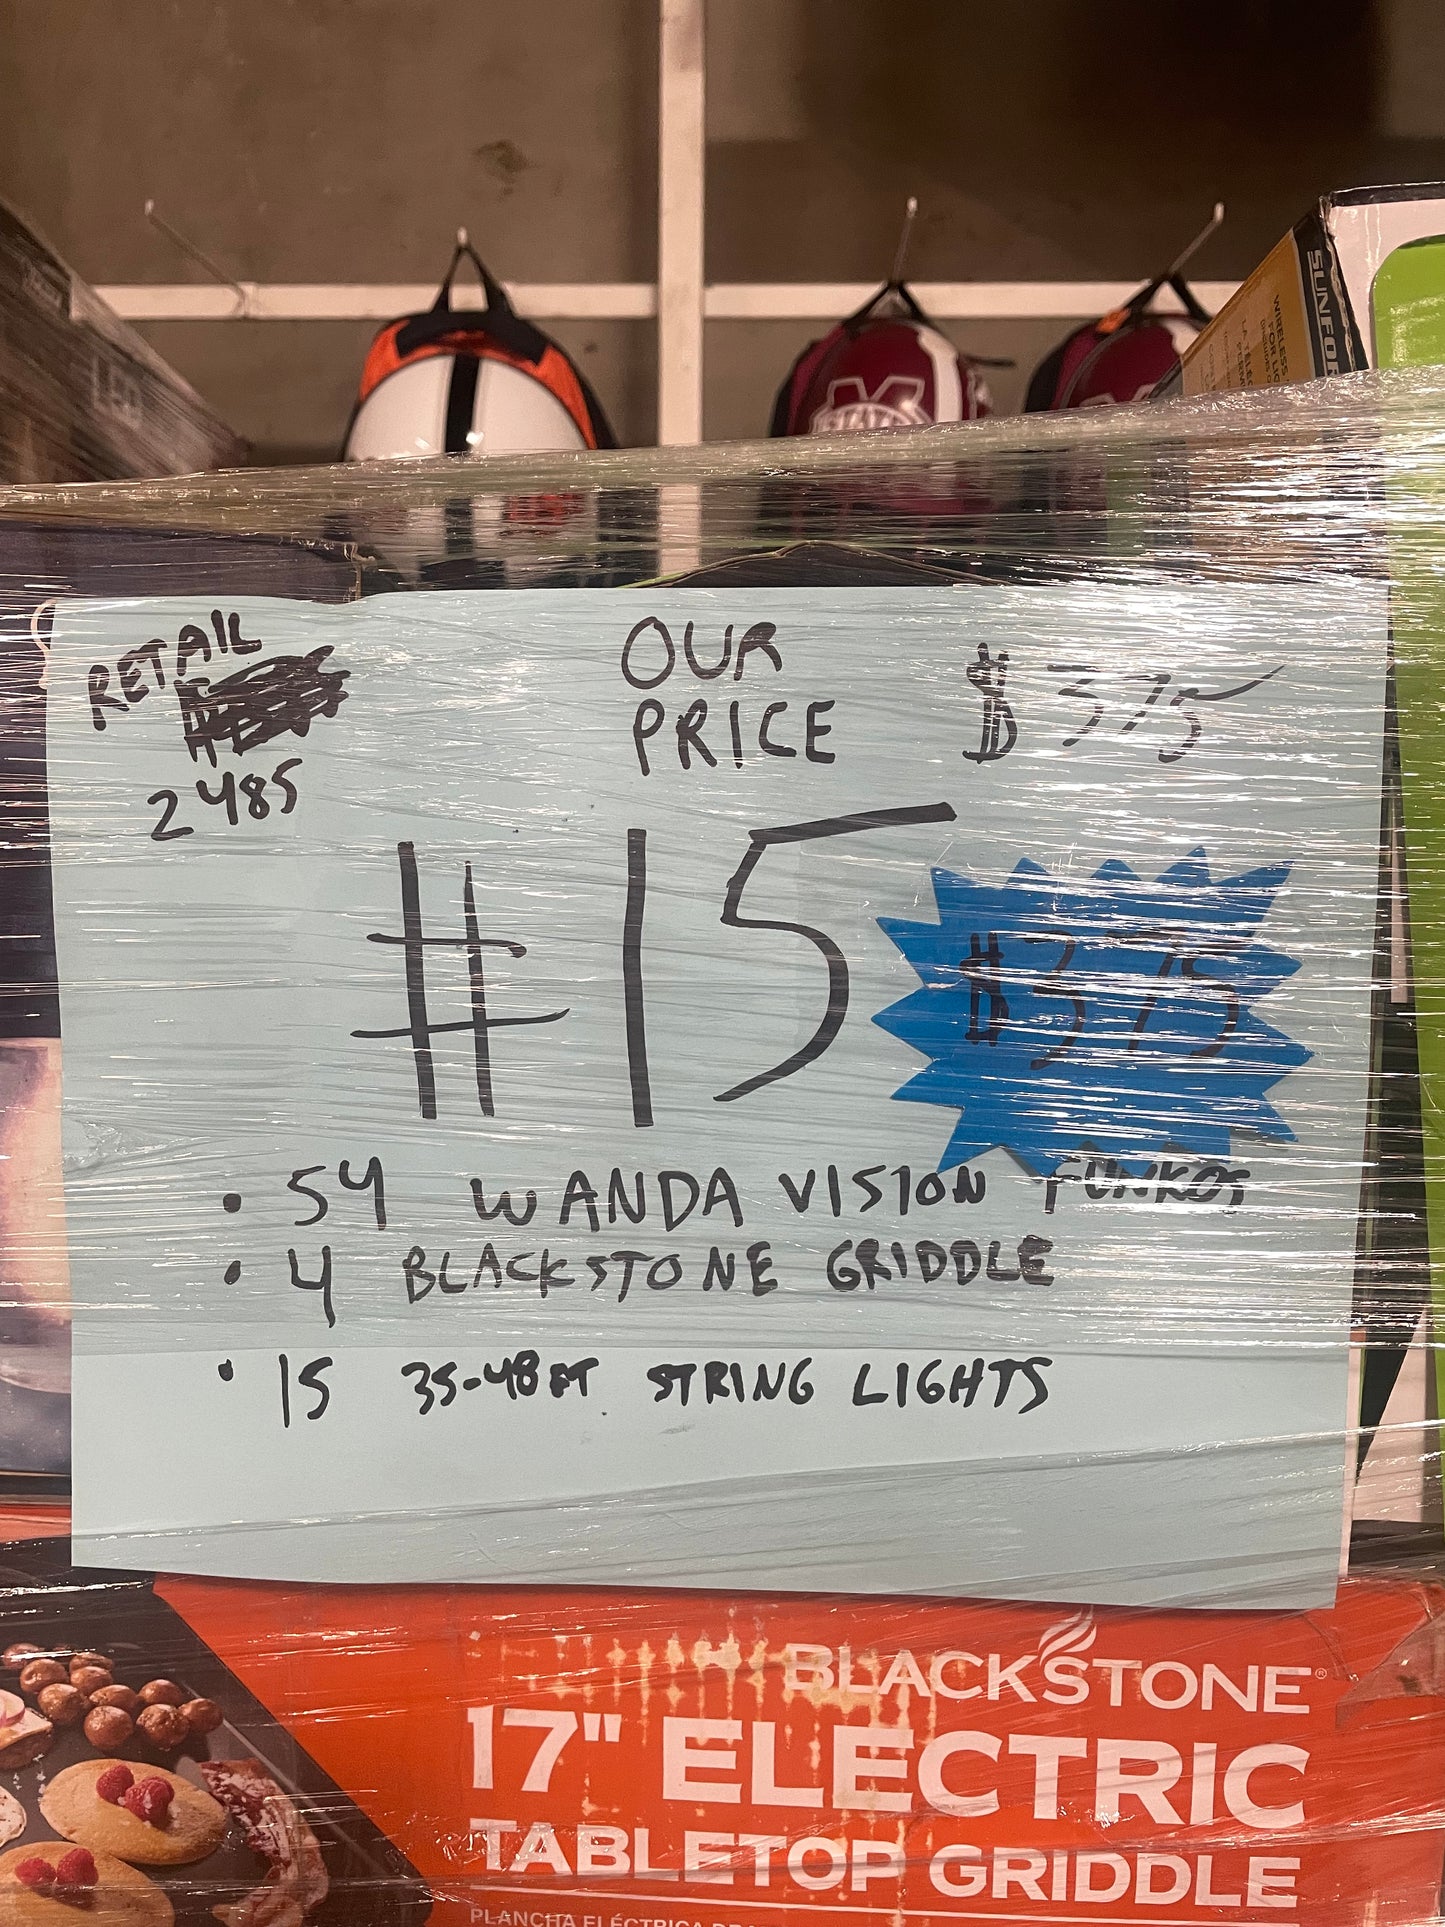 SUNFOR
WIRELESS
FOR LIG
STATE
RETAIL
2485
OUR
PRICE
$375
#15
$375
• 54 WANDA VISION FUNKOS
• 4 BLACKSTONE GRIDDLE
• 15 35-48FT STRING LIGHTS
BLACKSTONE®
17" ELECTRIC
TABLETOP GRIDDLE
PLANCHA ELÉCTRICA DE